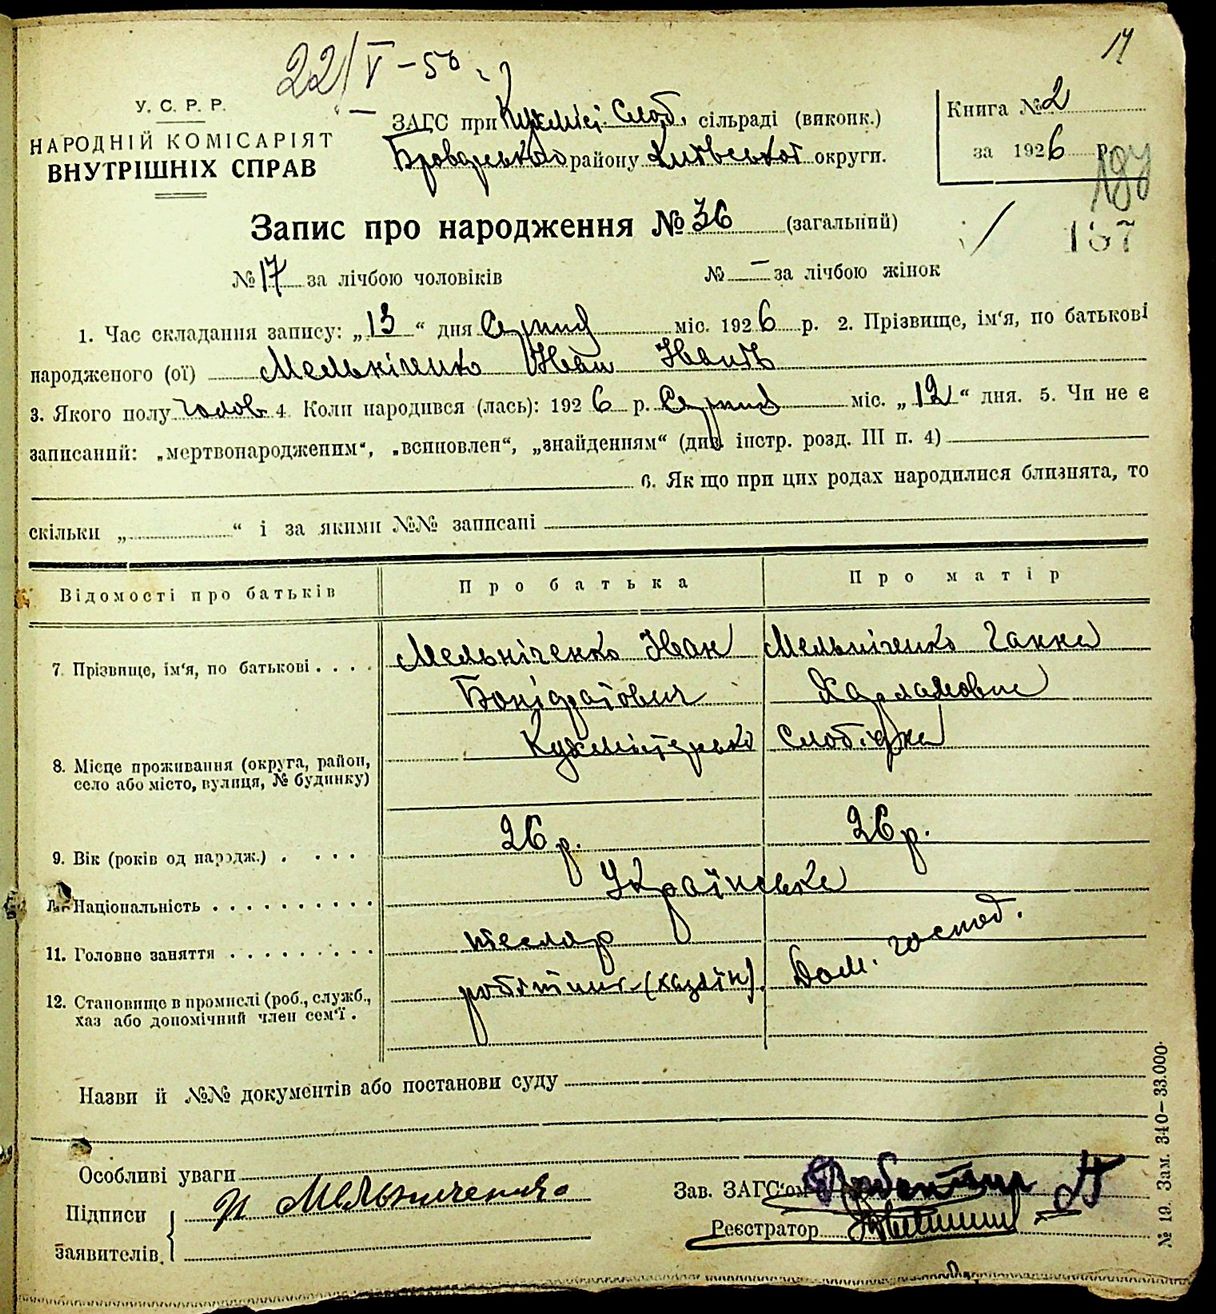 22/V-50
17
У. С. Р. Р.
НАРОДНІЙ КОМІСАРІЯТ
ВНУТРІШНІХ СПРАВ
ЗАГС при Кухміс. Слоб. сільраді (виконк.)
Броварського району Київської округи.
Книга № 2
за 1926 р.
197
Запис про народження № 36 (загальний)
137
№ 17 за лічбою чоловіків № — за лічбою жінок
1. Час складання запису: „13“ дня Серпня міс. 1926 р. 2. Прізвище, ім'я, по батькові
народженого (ої) Мельніченко Іван Іванів
3. Якого полу чолов. 4. Коли народився (лась): 1926 р. Серпня міс. „12“ дня. 5. Чи не є
записаний: „мертвонародженим“, „всиновлен“, „знайденням“ (див. інстр. розд. III п. 4)
6. Якщо при цих родах народилися близнята, то
скільки „ “ і за якими №№ записані
Відомості про батьків Про батька Про матір
7. Прізвище, ім'я, по батькові . . . . Мельніченко Іван Мельніченко Ганна
Боніфатович Харламовна
8. Місце проживання (округа, район, село або місто, вулиця, № будинку) Кухмістерська Слобідка
9. Вік (років од народж.) . . . . 26 р. 26 р.
10. Національність . . . . . . . . . . Українська
11. Головне заняття . . . . . . . . . тесляр Дом. господ.
12. Становище в промислі (роб., служб., хаз або допомічний член сем'ї . робітник (хазяїн).
Назви й №№ документів або постанови суду
Особливі уваги
Підписи заявителів. И Мельниченко
Зав. ЗАГС'ом
Реєстратор
№ 19. Зам. 340—33.000.